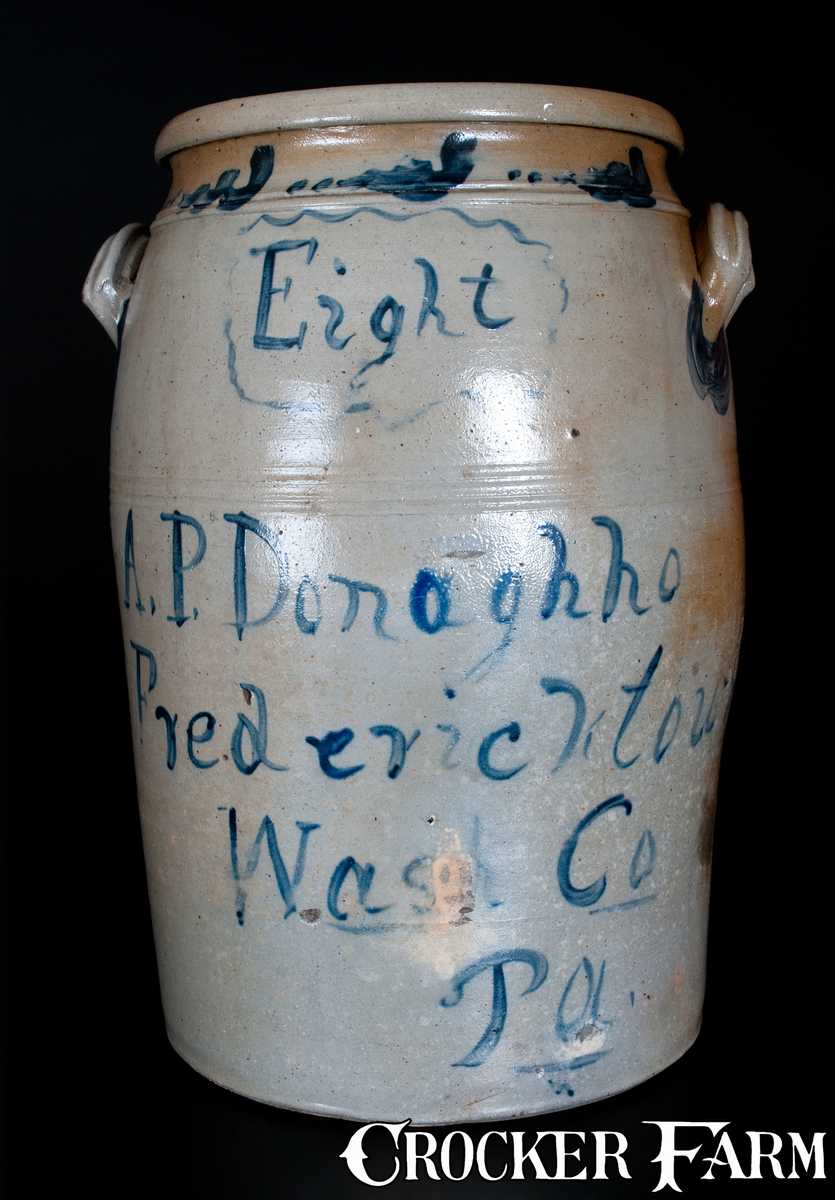 Eight
A. P. Donaghho
Fredericktown
Wash Co
Pa.
CROCKER FARM